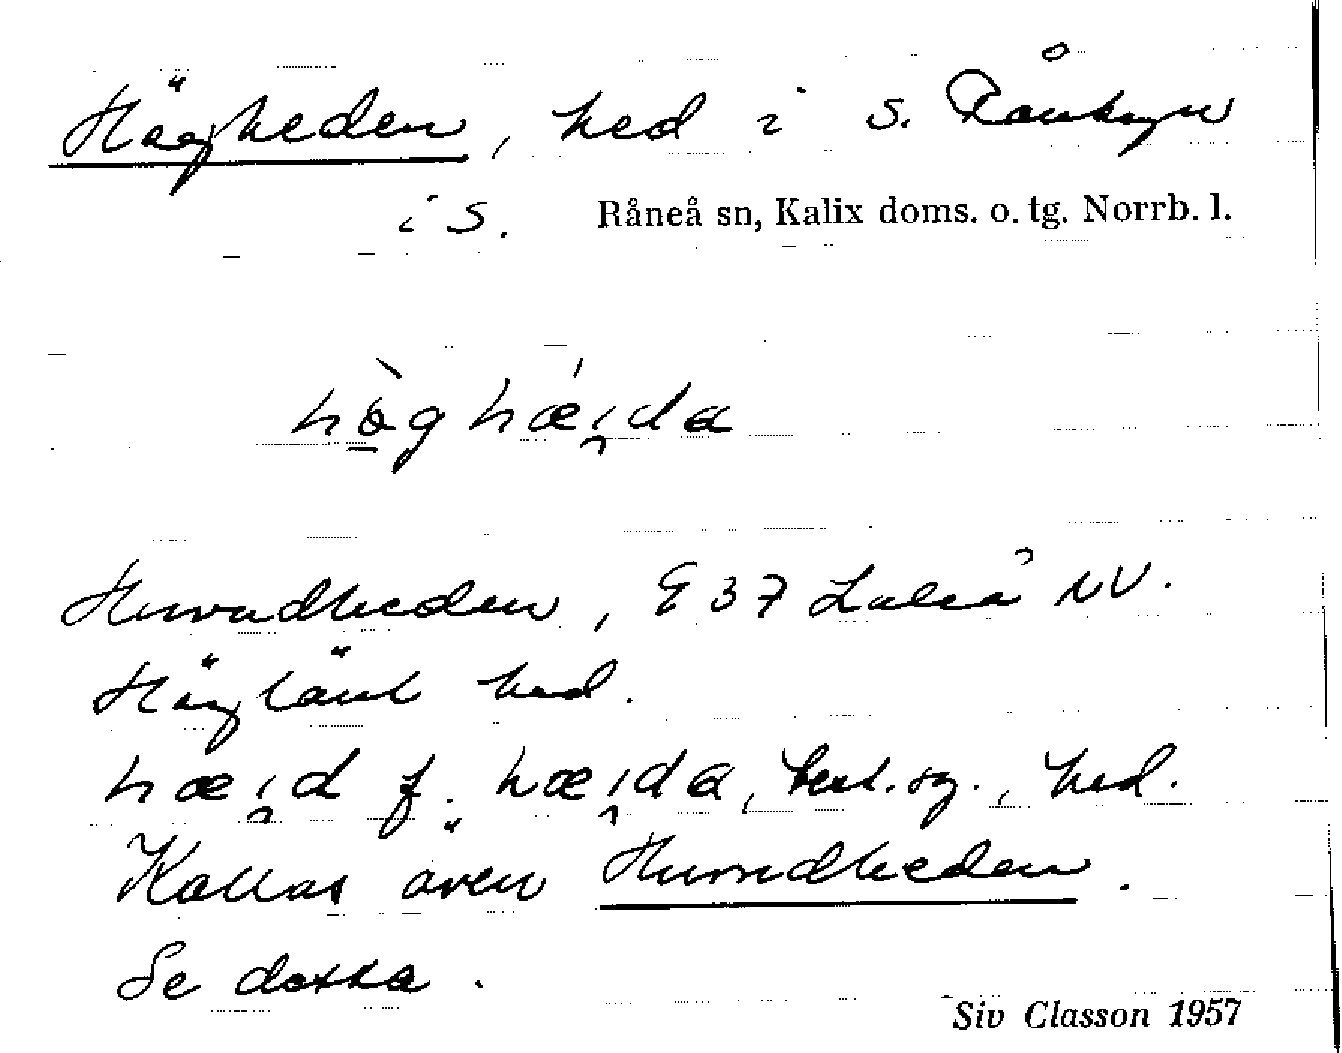 Högheden, hed i s. Rånbyn
i S. Råneå sn, Kalix doms. o. tg. Norrb. l.
hò̱ghǽi̯da
Huvudheden, E 37 Luleå NV.
Höglänt hed.
hæi̯d f. hæi̯da, best. sg., hed.
Kallas även Huvudheden.
Se detta.
Siv Classon 1957